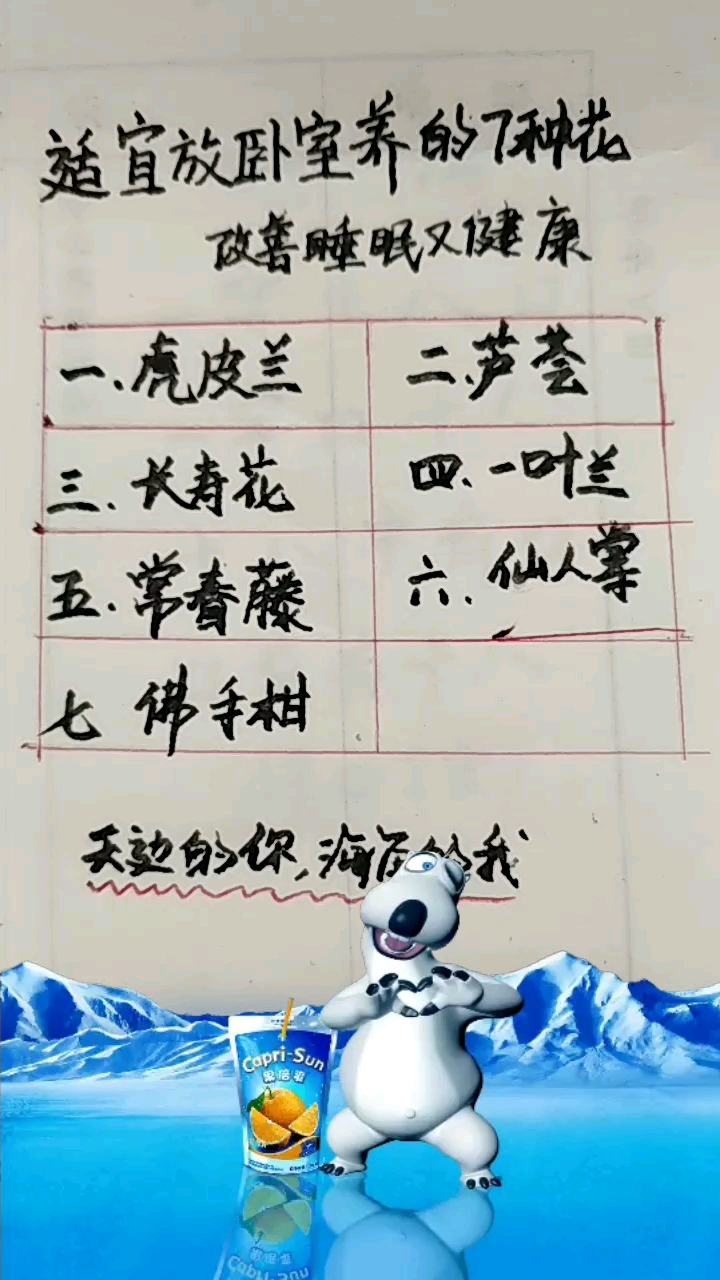 适宜放卧室养的7种花
改善睡眠又健康
一、虎皮兰
二、芦荟
三、长寿花
四、一叶兰
五、常春藤
六、仙人掌
七 佛手柑
天边的你,海 的我
Capri-Sun
果倍爽